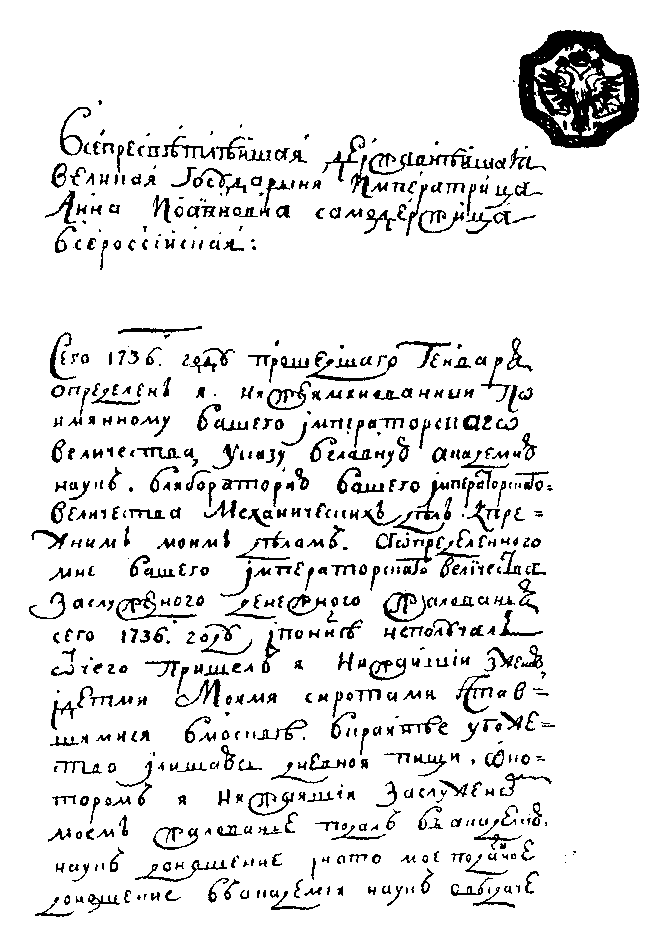 Всепресвѣтлѣйшая державнѣйшая
великая Государыня Императрица
Анна Иоанновна самодержица
всероссійская:
Сего 1736. году прошедшаго Генваря
определенъ я. нижеимянованный По
имянному вашего імператорскаго
величества, указу вглавную академию
наукъ. влабораторию вашего імператорскаго
величества Механическихъ дѣлъ. кпре=
жнимъ моимъ дѣламъ. Аопределенного
мне вашего імператорскаго величества
Заслуженого денежного жалованья
сего 1736. году іпонынѣ неполучалъ
отчего Пришелъ я Нижайшіи Зженою
ідетми Моими сиротами Остав=
шимися вмосквѣ. вкрайнѣе убоже=
ство ілишався дневной пищи, Око=
торомъ я Нижайшіи Заслуженомъ
моемъ жалованье подалъ въакадемию.
наукъ доношение. інато мое поданое
доношение въакадемія наукъ